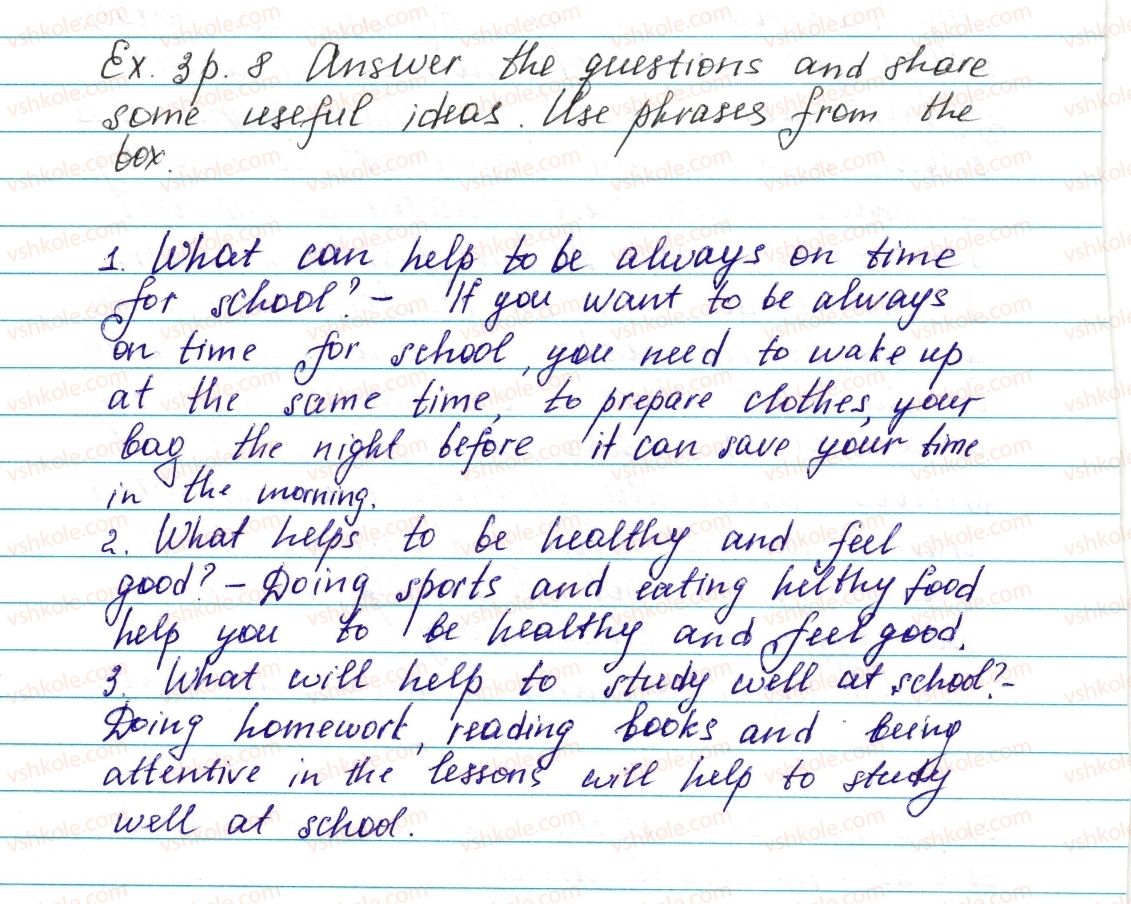 Ex. 3 p. 8 Answer the questions and share
some useful ideas. Use phrases from the
box.
1. What can help to be always on time
for school? - If you want to be always
on time for school, you need to wake up
at the same time, to prepare clothes, your
bag the night before it can save your time
in the morning.
2. What helps to be healthy and feel
good? - Doing sports and eating helthy food
help you to be healthy and feel good.
3. What will help to study well at school? -
Doing homework, reading books and being
attentive in the lessons will help to study
well at school.
vshkole.com